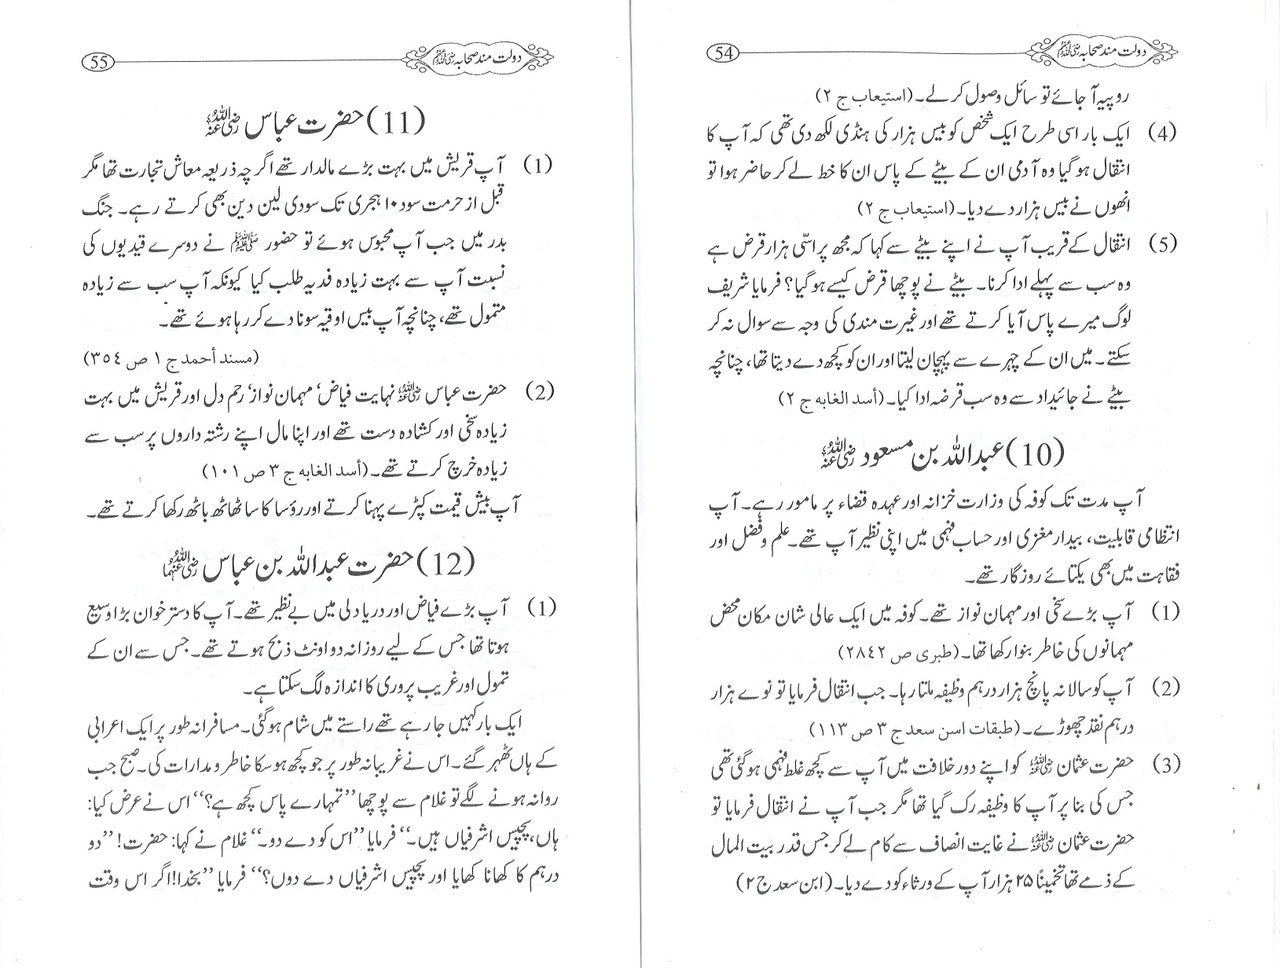 دولت مند صحابہ رضی اللہ عنہم
54
روپیہ آ جائے تو سائل وصول کر لے۔ (استیعاب ج ٢)
(4) ایک بار اسی طرح ایک شخص کو بیس ہزار کی ہنڈی لکھ دی تھی کہ آپ کا
انتقال ہو گیا وہ آدمی ان کے بیٹے کے پاس ان کا خط لے کر حاضر ہوا تو
انھوں نے بیس ہزار دے دیا۔ (استیعاب ج ٢)
(5) انتقال کے قریب آپ نے اپنے بیٹے سے کہا کہ مجھ پر اسّی ہزار قرض ہے
وہ سب سے پہلے ادا کرنا۔ بیٹے نے پوچھا قرض کیسے ہو گیا؟ فرمایا شریف
لوگ میرے پاس آیا کرتے تھے اور غیرت مندی کی وجہ سے سوال نہ کر
سکتے۔ میں ان کے چہرے سے پہچان لیتا اور ان کو کچھ دے دیتا تھا، چنانچہ
بیٹے نے جائیداد سے وہ سب قرضہ ادا کیا۔ (أسد الغابہ ج ٢)
(10) عبداللہ بن مسعود رضی اللہ عنہ
آپ مدت تک کوفہ کی وزارت خزانہ اور عہدہ قضاء پر مامور رہے۔ آپ
انتظامی قابلیت، بیدار مغزی اور حساب فہمی میں اپنی نظیر آپ تھے۔ علم و فضل اور
فقاہت میں بھی یکتائے روزگار تھے۔
(1) آپ بڑے سخی اور مہمان نواز تھے۔ کوفہ میں ایک عالی شان مکان محض
مہمانوں کی خاطر بنوا رکھا تھا۔ (طبری ص ٢٨٤٢)
(2) آپ کو سالانہ پانچ ہزار درہم وظیفہ ملتا رہا۔ جب انتقال فرمایا تو نوے ہزار
درہم نقد چھوڑے۔ (طبقات اسن سعد ج ٣ ص ١١٣)
(3) حضرت عثمان رضی اللہ عنہ کو اپنے دور خلافت میں آپ سے کچھ غلط فہمی ہو گئی تھی
جس کی بنا پر آپ کا وظیفہ رک گیا تھا مگر جب آپ نے انتقال فرمایا تو
حضرت عثمان رضی اللہ عنہ نے غایت انصاف سے کام لے کر جس قدر بیت المال
کے ذمے تھا تخمیناً ۲۵ ہزار آپ کے ورثاء کو دے دیا۔ (ابن سعد ج ٢)
دولت مند صحابہ رضی اللہ عنہم
55
(11) حضرت عباس رضی اللہ عنہ
(1) آپ قریش میں بہت بڑے مالدار تھے اگرچہ ذریعہ معاش تجارت تھا مگر
قبل از حرمت سود ۱۰ ہجری تک سودی لین دین بھی کرتے رہے۔ جنگ
بدر میں جب آپ محبوس ہوئے تو حضور ﷺ نے دوسرے قیدیوں کی
نسبت آپ سے بہت زیادہ فدیہ طلب کیا کیونکہ آپ سب سے زیادہ
متمول تھے، چنانچہ آپ بیس اوقیہ سونا دے کر رہا ہوئے تھے۔
(مسند أحمد ج ١ ص ٣٥٤)
(2) حضرت عباس رضی اللہ عنہ نہایت فیاض‘ مہمان نواز‘ رحم دل اور قریش میں بہت
زیادہ سخی اور کشادہ دست تھے اور اپنا مال اپنے رشتہ داروں پر سب سے
زیادہ خرچ کرتے تھے۔ (أسد الغابه ج ٣ ص ١٠١)
آپ بیش قیمت کپڑے پہنا کرتے اور رؤسا کا سا ٹھاٹھ باٹھ رکھا کرتے تھے۔
(12) حضرت عبداللہ بن عباس رضی اللہ عنہما
(1) آپ بڑے فیاض اور دریا دلی میں بے نظیر تھے۔ آپ کا دستر خوان بڑا وسیع
ہوتا تھا جس کے لیے روزانہ دو اونٹ ذبح ہوتے تھے۔ جس سے ان کے
تمول اور غریب پروری کا اندازہ لگ سکتا ہے۔
ایک بار کہیں جا رہے تھے راستے میں شام ہو گئی۔ مسافرانہ طور پر ایک اعرابی
کے ہاں ٹھہر گئے۔ اس نے غریبانہ طور پر جو کچھ ہو سکا خاطر و مدارات کی۔ صبح جب
روانہ ہونے لگے تو غلام سے پوچھا ’’تمہارے پاس کچھ ہے؟‘‘ اس نے عرض کیا:
ہاں، پچیس اشرفیاں ہیں۔‘‘ فرمایا ’’اس کو دے دو۔‘‘ غلام نے کہا: حضرت! ’’دو
درہم کا کھانا کھایا اور پچیس اشرفیاں دے دوں؟‘‘ فرمایا ’’بخدا! اگر اس وقت